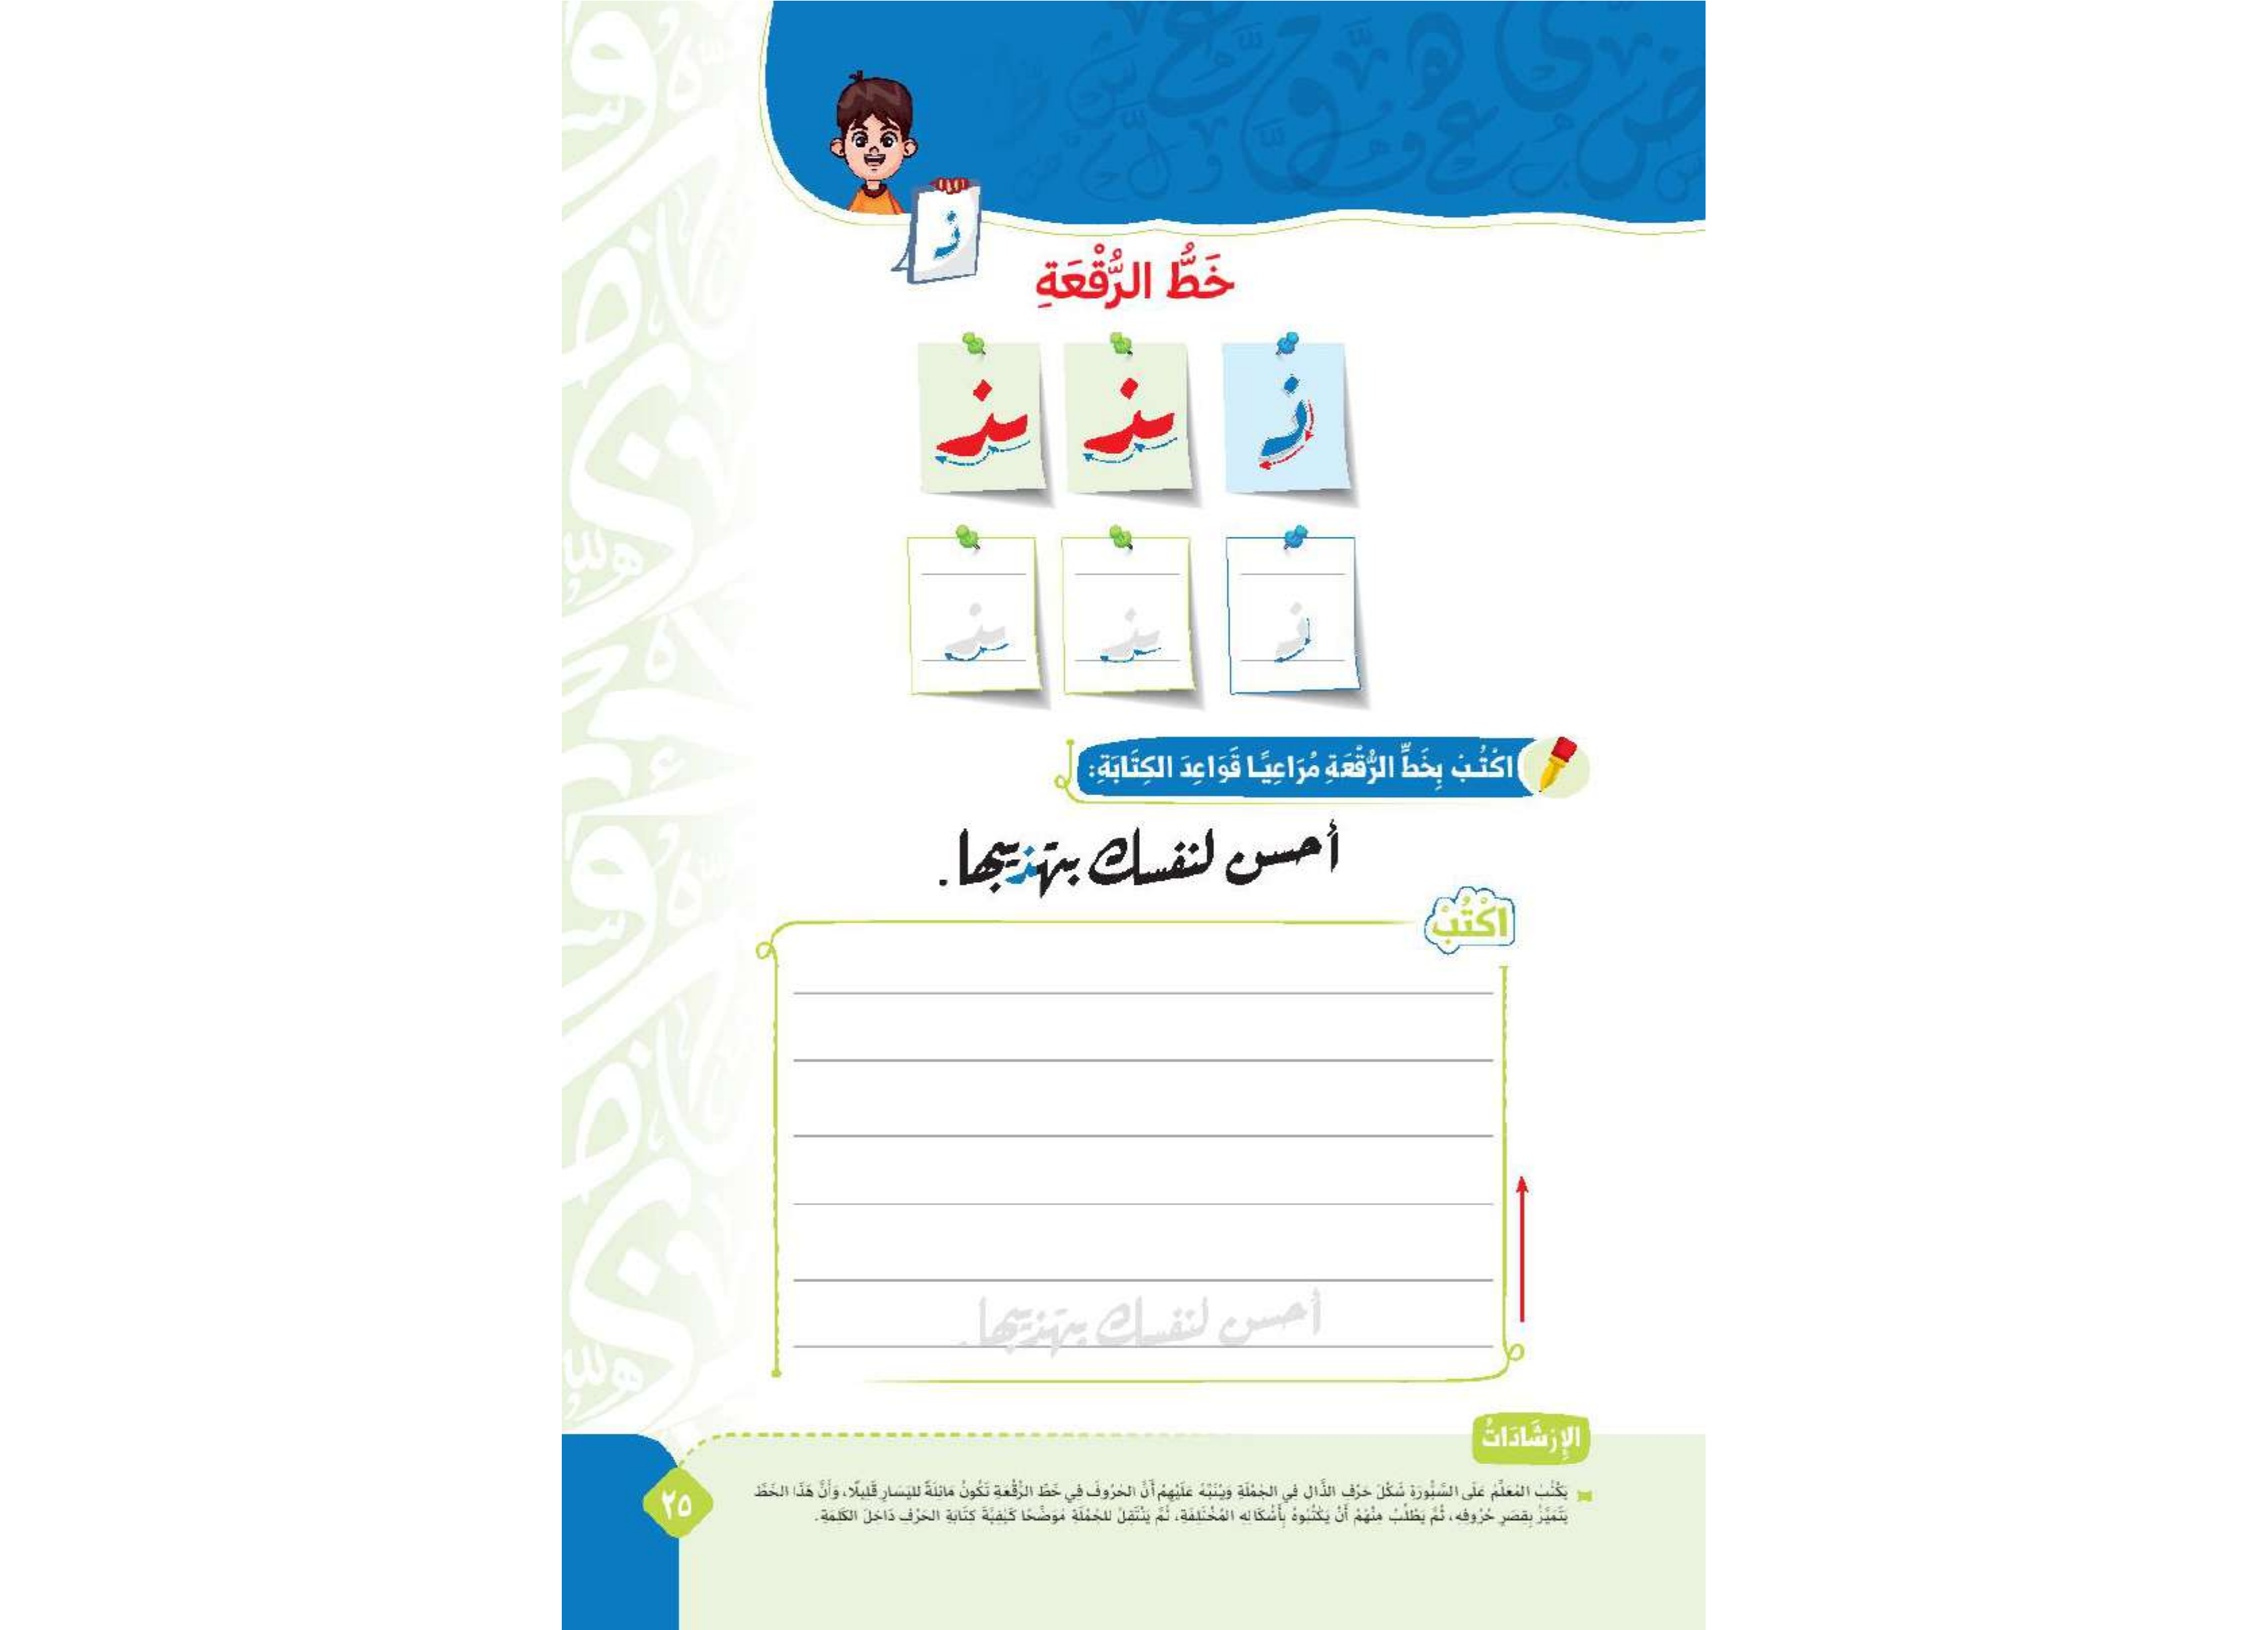 ذ
خَطُّ الرُّقْعَةِ
ذ ـذ ـذ
ذ ـذ ـذ
اكْتُبْ بِخَطِّ الرُّقْعَةِ مُرَاعِيًا قَوَاعِدَ الكِتَابَةِ:
أحسن لنفسك بتهذيبها.
اكْتُبْ
أحسن لنفسك بتهذيبها.
الإِرْشَادَاتُ
يَكْتُبُ المُعَلِّمُ عَلَى السَّبُّورَةِ شَكْلَ حَرْفِ الذَّالِ فِي الجُمْلَةِ وَيُنَبِّهُ عَلَيْهِمْ أَنَّ الحُرُوفَ فِي خَطِّ الرُّقْعَةِ تَكُونُ مَائِلَةً لليَسَارِ قَلِيلًا، وَأَنَّ هَذَا الخَطَّ
يَتَمَيَّزُ بِقِصَرِ حُرُوفِهِ، ثُمَّ يَطْلُبُ مِنْهُمْ أَنْ يَكْتُبُوهُ بِأَشْكَالِهِ المُخْتَلِفَةِ، ثُمَّ يَنْتَقِلُ للجُمْلَةِ مُوَضِّحًا كَيْفِيَّةَ كِتَابَةِ الحَرْفِ دَاخِلَ الكَلِمَةِ.
٢٥